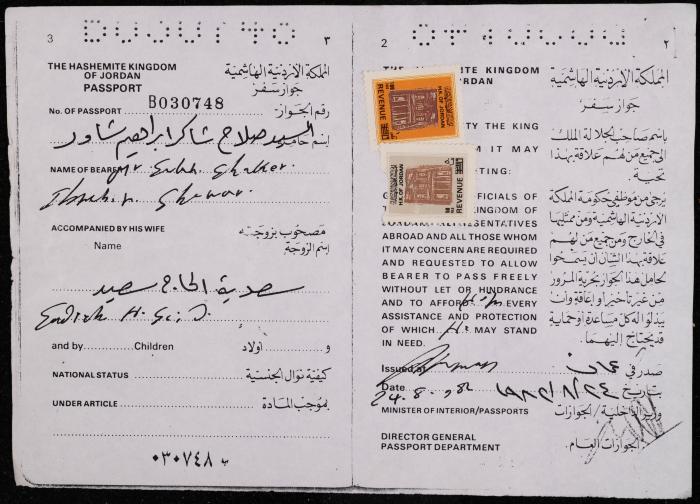 3
٣
THE HASHEMITE KINGDOM
OF JORDAN
PASSPORT
المملكة الأردنية الهاشمية
جواز سفر
No. OF PASSPORT
B030748
رقم الجواز
السيد صلاح شاكر ابراهيم شاور
إسم حامله
NAME OF BEARER
Mr Salah Shaker
Ibrahim Shawar
ACCOMPANIED BY HIS WIFE
مصحوب بزوجته
Name
إسم الزوجة
سعدية الحاج سعيد
and by
Children
و
أولاد
NATIONAL STATUS
كيفية نوال الجنسية
UNDER ARTICLE
بموجب المادة
ب ٠٣٠٧٤٨
2
٢
THE HASHEMITE KINGDOM
JORDAN
المملكة الأردنية الهاشمية
جواز سفر
REVENUE
H.K. OF JORDAN
H.K. OF JORDAN
REVENUE
TY THE KING
M IT MAY
ETING:
FICIALS OF
NGDOM OF
REPRESENTATIVES
ABROAD AND ALL THOSE WHOM
IT MAY CONCERN ARE REQUIRED
AND REQUESTED TO ALLOW
BEARER TO PASS FREELY
WITHOUT LET OR HINDRANCE
AND TO AFFORD Him EVERY
ASSISTANCE AND PROTECTION
OF WHICH He MAY STAND
IN NEED.
باسم صاحب الجلالة الملك
الى جميع من لهم علاقة بهذا
تحية
يرجى من موظفي حكومة المملكة
الأردنية الهاشمية ومن ممثليها
في الخارج ومن جميع من لهم
علاقة بهذا الشأن ان يسمحوا
لحامل هذا الجواز بحرية المرور
من غير تأخير او إعاقة وان
يبذلوا له كل مساعدة أو حماية
قد يحتاج إليهما.
Issued at Amman
صدر في عمان
Date 24.8.982
بتاريخ ١٩٨٢/٨/٢٤
MINISTER OF INTERIOR/PASSPORTS
وزير الداخلية/الجوازات
DIRECTOR GENERAL
PASSPORT DEPARTMENT
الجوازات العام